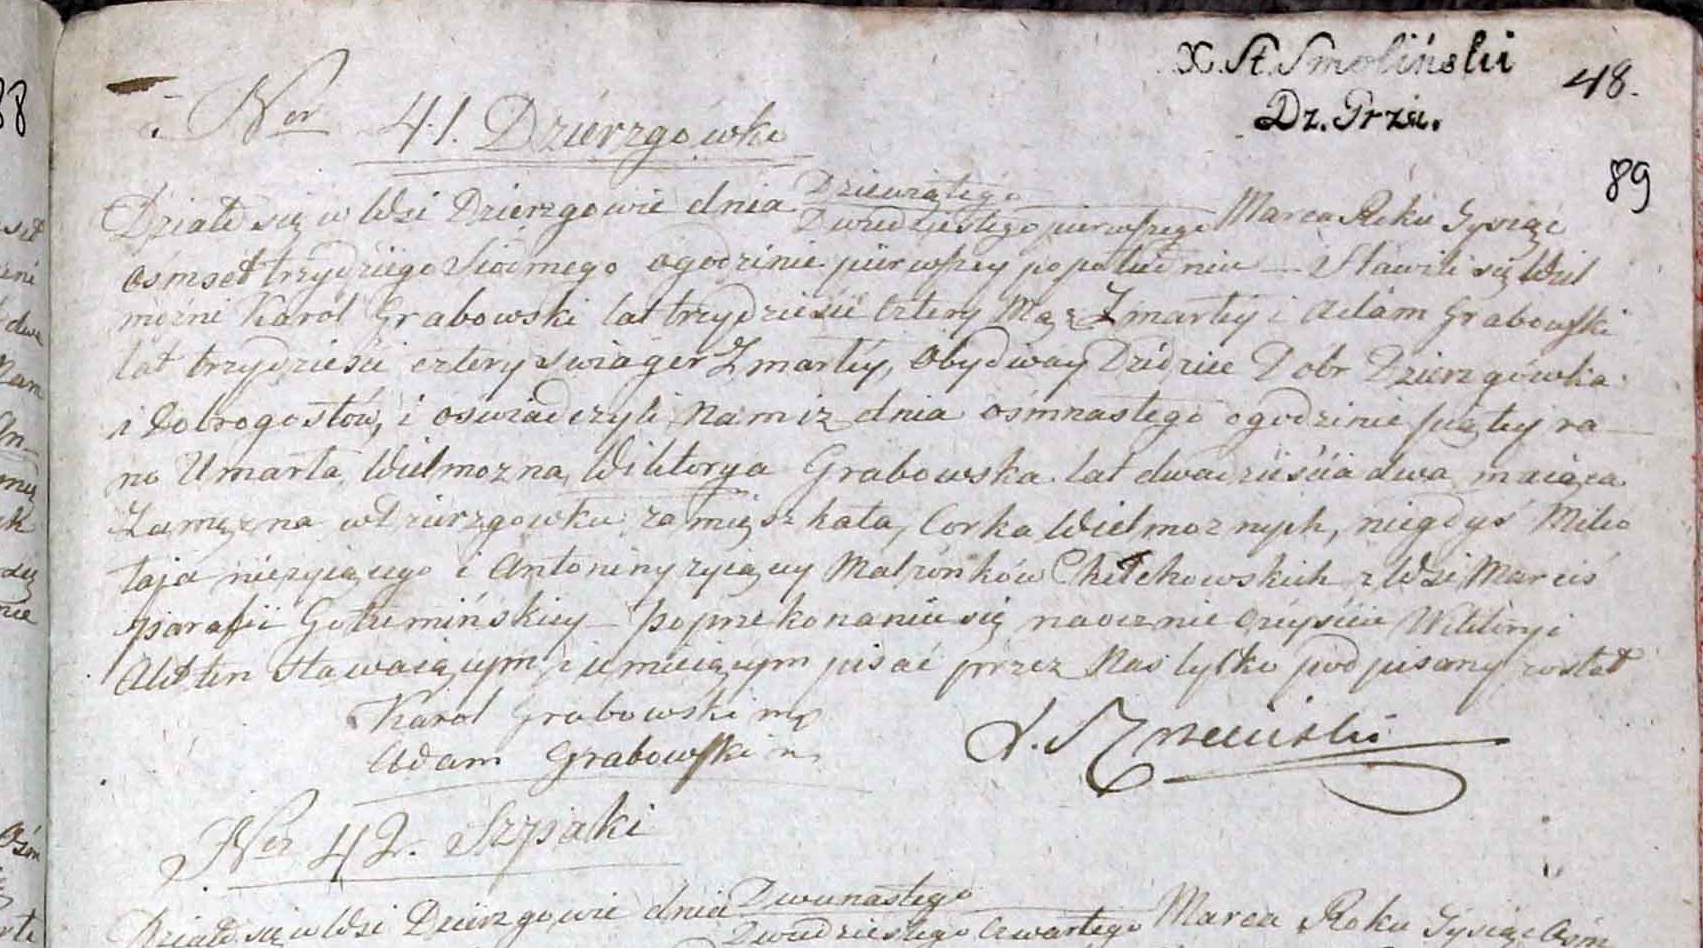 X. St. Smoliński
48.
Dz. Prza.
88
89
Ner 41. Dzierzgówko
Działo się w Wsi Dzierzgowie dnia Dziewiątego
Dwudziestego pierwszego Marca Roku Tysiąc
ośmset trzydziego siódmego o godzinie pierwszey po południu – Stawili się Wiel
możni Karol Grabowski lat trzydzieście cztery Mąż Zmarłey i Adam Grabowski
lat trzydzieści cztery swiager Zmarłey, obydway Dzidzice Dobr Dzierzgówka
i Dobrogostów, i oswiadczyli Nam iz dnia ośmnastego o godzinie piątey ra
no Umarła Wielmozna Wiktorya Grabowska lat dwadzieścia dwa maiąca
Zamężna w Dzierzgowku zamięszkała, Corka Wielmoznych, niegdyś Miko
łaja nieżyiącego i Antoniny zyiący Małżonków Chełchowskich z Wsi Marcis
parafii Gołemińskiey – po przekonaniu się naocznie o zeyściu Wiktoryi
Akt ten stawaiącym i umieiącym pisać przez Nas tylko podpisany został
Karol Grabowski mp
Adam Grabowski m
Ner 42. Szpaki
Działo się w Wsi Dzierzgowie dnia Dwunastego
Dwudziestego Czwartego Marca Roku Tysiąc Ośm